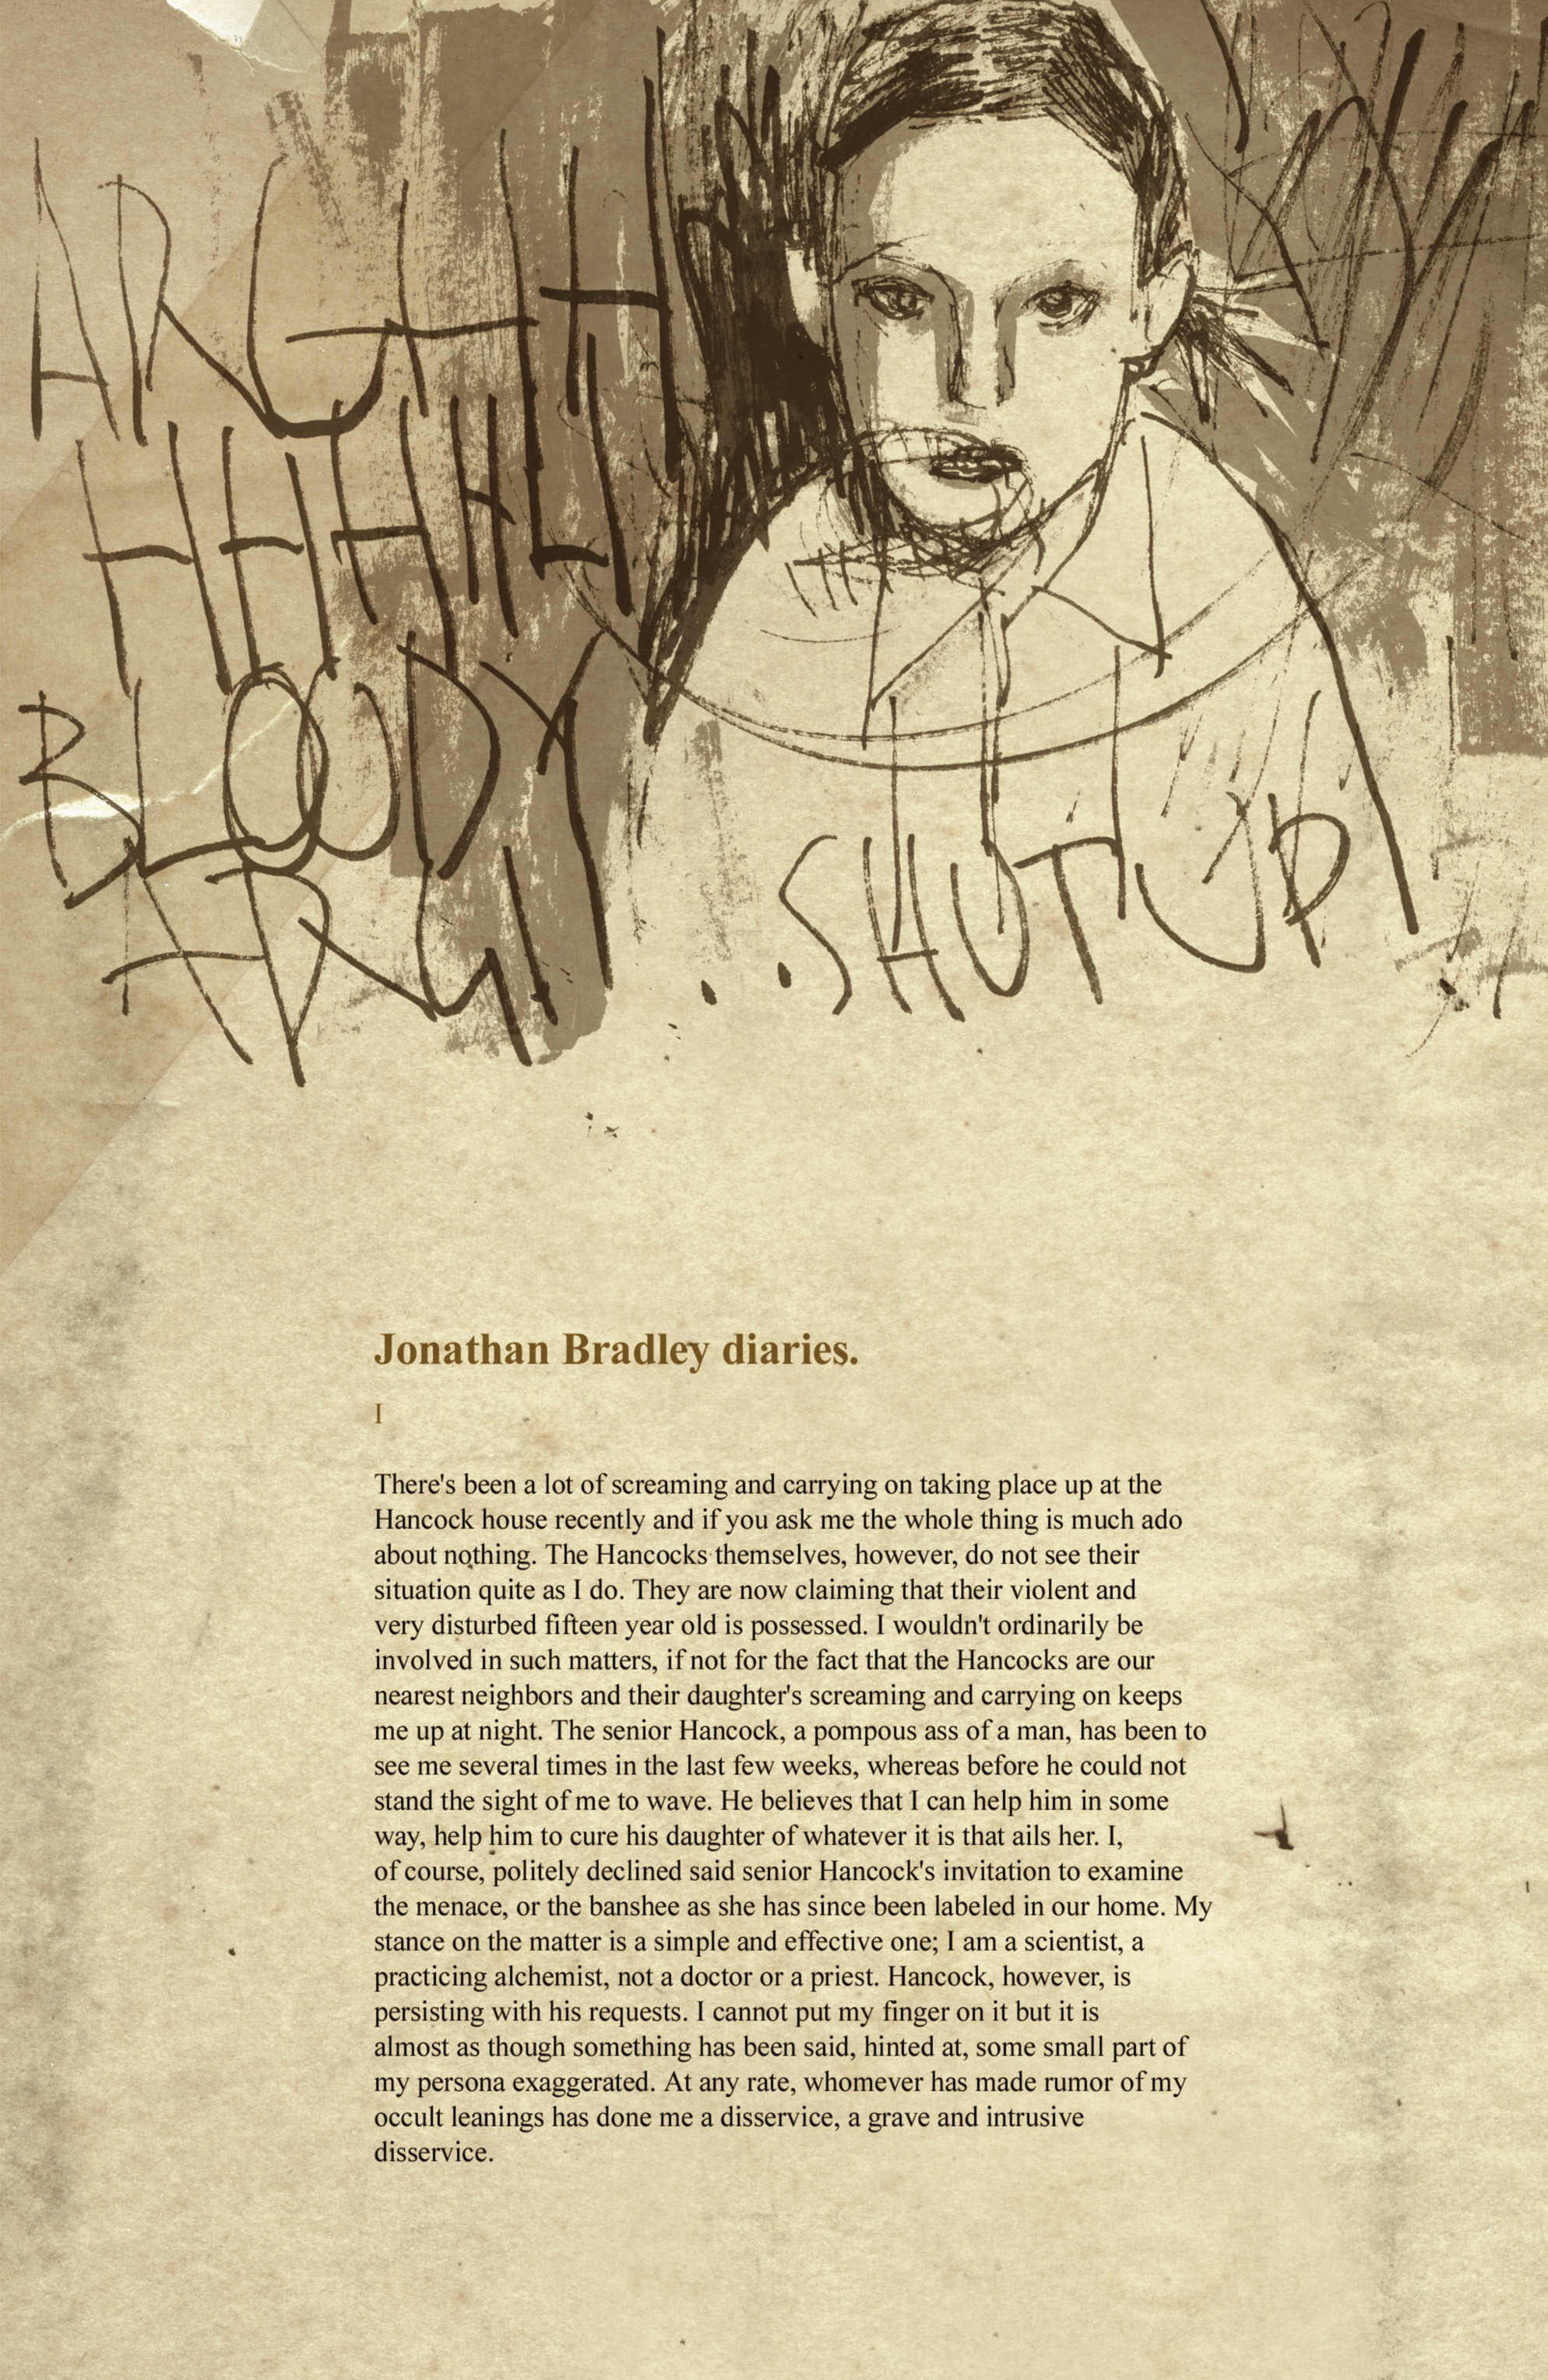 ARGHH
HHHHH
BLOODY
ARGH
..SHUT UP!
Jonathan Bradley diaries.
I
There's been a lot of screaming and carrying on taking place up at the
Hancock house recently and if you ask me the whole thing is much ado
about nothing. The Hancocks themselves, however, do not see their
situation quite as I do. They are now claiming that their violent and
very disturbed fifteen year old is possessed. I wouldn't ordinarily be
involved in such matters, if not for the fact that the Hancocks are our
nearest neighbors and their daughter's screaming and carrying on keeps
me up at night. The senior Hancock, a pompous ass of a man, has been to
see me several times in the last few weeks, whereas before he could not
stand the sight of me to wave. He believes that I can help him in some
way, help him to cure his daughter of whatever it is that ails her. I,
of course, politely declined said senior Hancock's invitation to examine
the menace, or the banshee as she has since been labeled in our home. My
stance on the matter is a simple and effective one; I am a scientist, a
practicing alchemist, not a doctor or a priest. Hancock, however, is
persisting with his requests. I cannot put my finger on it but it is
almost as though something has been said, hinted at, some small part of
my persona exaggerated. At any rate, whomever has made rumor of my
occult leanings has done me a disservice, a grave and intrusive
disservice.